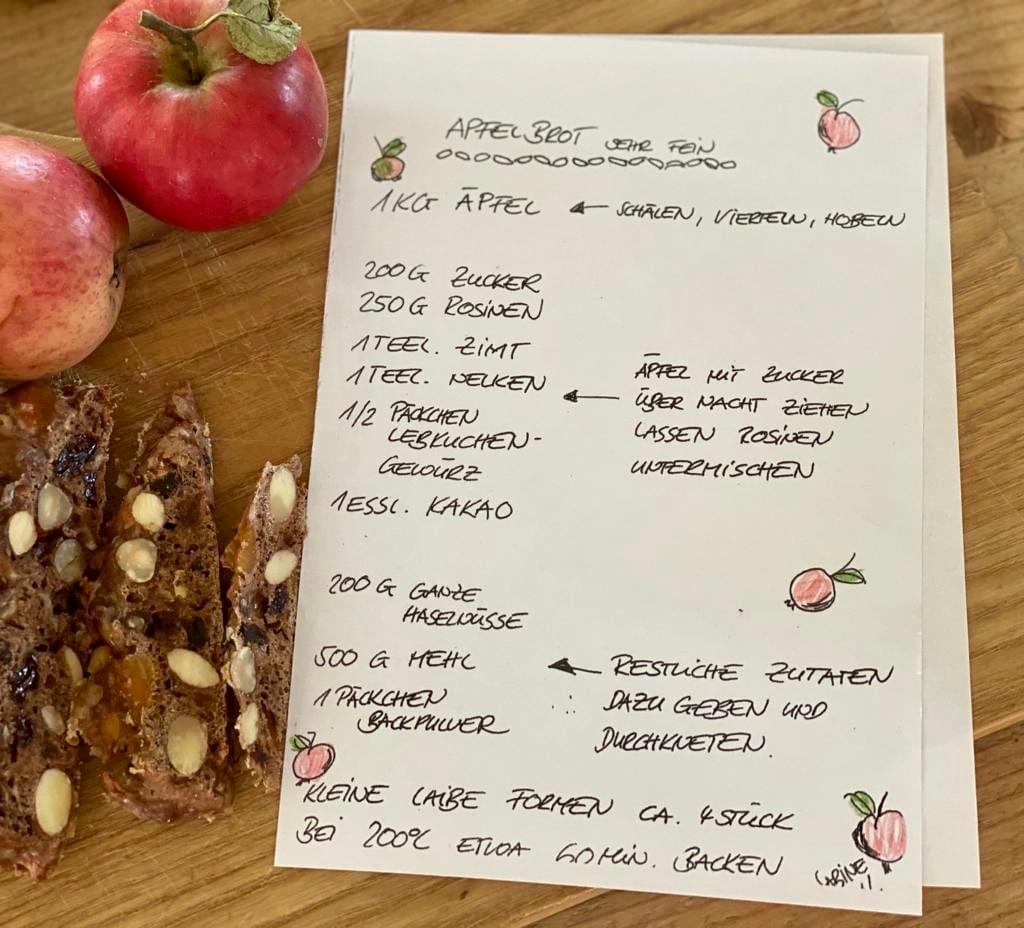 APFELBROT SEHR FEIN
1 KG ÄPFEL ← SCHÄLEN, VIERTELN, HOBELN
200 G ZUCKER
250 G ROSINEN
1 TEEL. ZIMT
1 TEEL. NELKEN ←
1/2 PÄCKCHEN
LEBKUCHEN-
GEWÜRZ
1 ESSL. KAKAO
ÄPFEL MIT ZUCKER
ÜBER NACHT ZIEHEN
LASSEN ROSINEN
UNTERMISCHEN
200 G GANZE
HASELNÜSSE
500 G MEHL ←
1 PÄCKCHEN
BACKPULVER
RESTLICHE ZUTATEN
DAZU GEBEN UND
DURCHKNETEN.
KLEINE LAIBE FORMEN CA. 4 STÜCK
BEI 200°C ETWA 60 MIN. BACKEN
SABINE